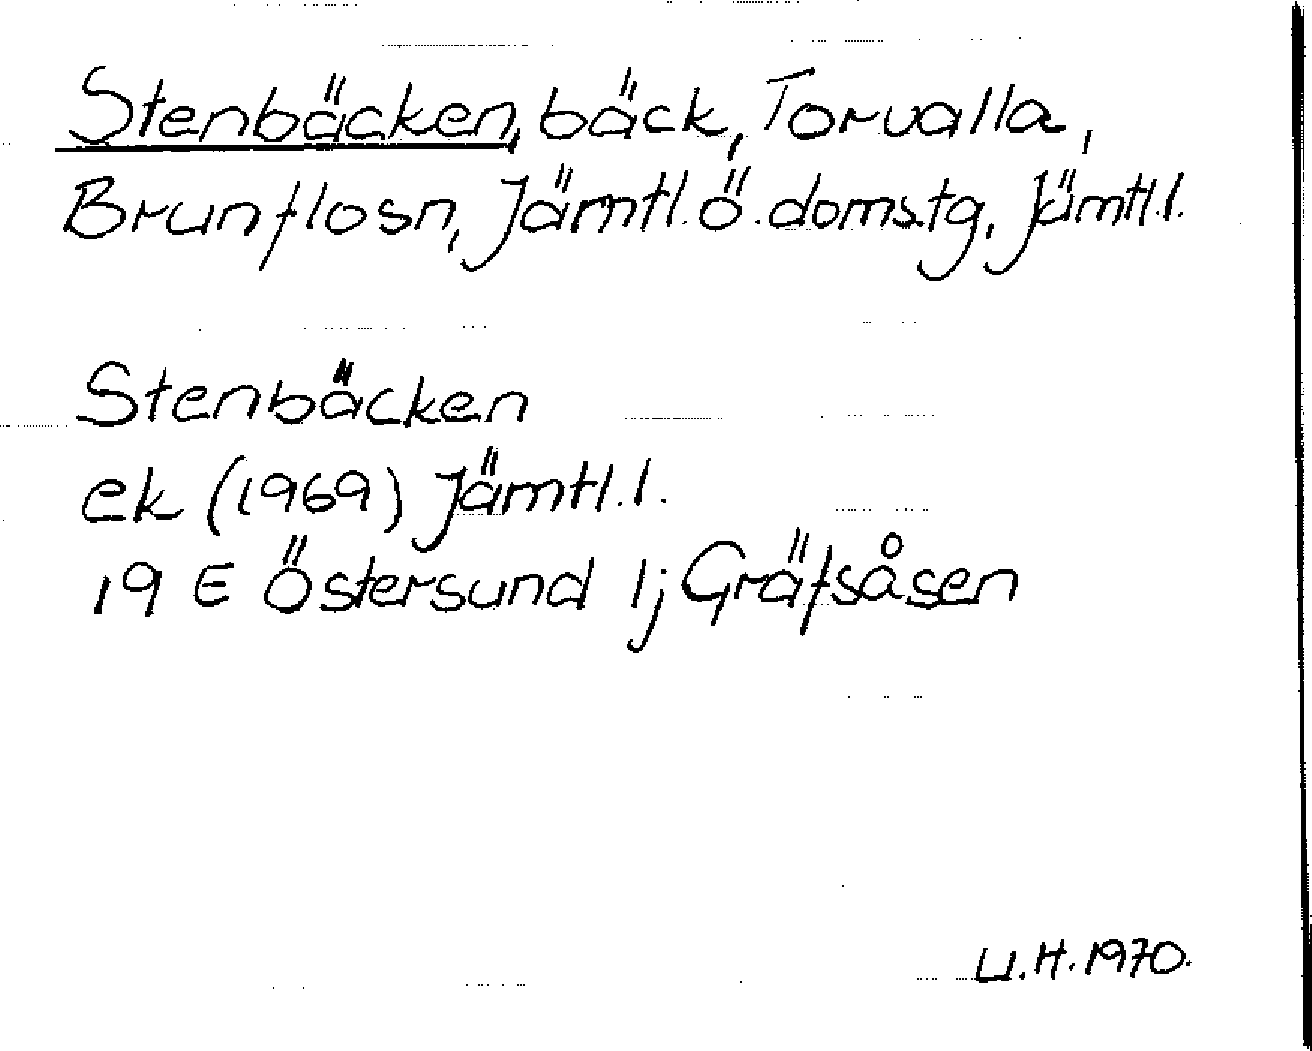 Stenbäcken, bäck, Torvalla,
Brunflosn, Jämtl. ö. doms.tg, Jämtl.l.
Stenbäcken
ek (1969) Jämtl.l.
19 E Östersund 1j Gräfsåsen
U.H. 1970.